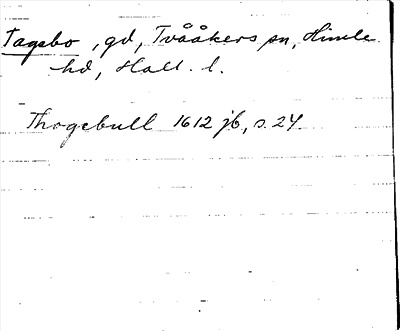 Tagsbo, gd, Tvååkers sn, Himle
hd, Hall. l.
Thogebull 1612 jb, s. 24.